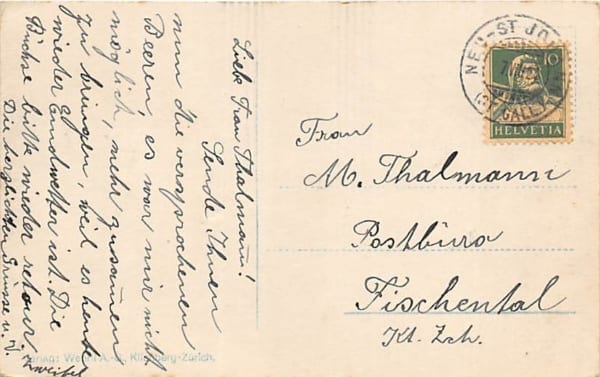 Liebe Frau Thalmann!
Sende Ihnen
nun die versprochenen
Beeren, es war mir nicht
möglich, mehr zusammen
zu bringen, weil es heute
wieder Emdwetter ist. Die
Büchse bitte wieder retour.
Die herzlichsten Grüsse v. J.
Zweifel
Frau
M. Thalmann
Postbüro
Fischental
Kt. Zch.
NEU-ST JOHANN
(ST GALLEN)
10
HELVETIA
A.-G., Kilchberg-Zürich.